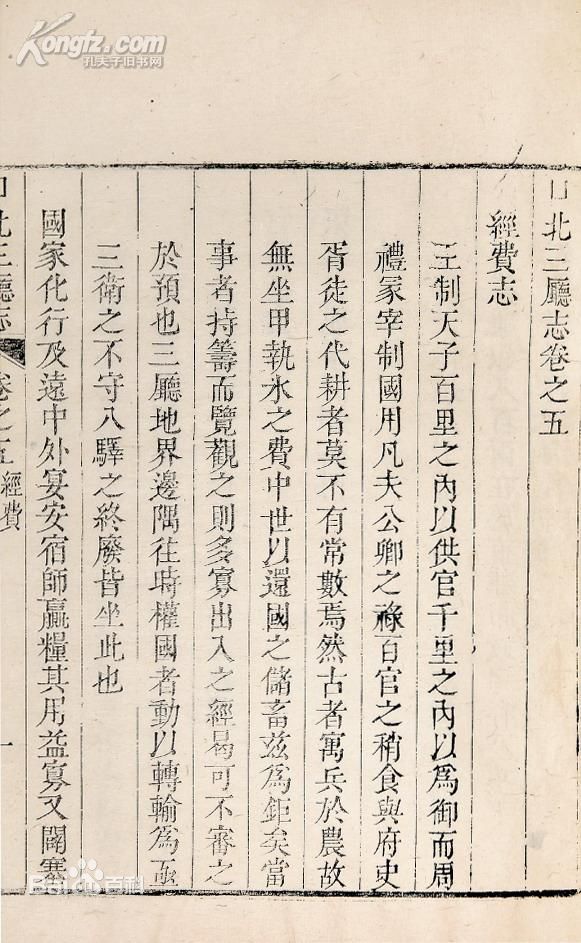 Kongfz.com
孔夫子旧书网
口北三廳志卷之五
經費志
王制天子百里之內以供官千里之內以爲御而周
禮冡宰制國用凡夫公卿之祿百官之稍食與府史
胥徒之代耕者莫不有常數焉然古者寓兵於農故
無坐甲執氷之費中世以還國之儲畜兹爲鉅矣當
事者持籌而覽觀之則多寡出入之經曷可不審之
於預也三廳地界邊隅往時權國者動以轉輸爲亟
三衛之不守八驛之終廢皆坐此也
國家化行及遠中外宴安宿師贏糧其用益寡又闢塞
口北三廳志
卷之五
經費
一
Baidu百科